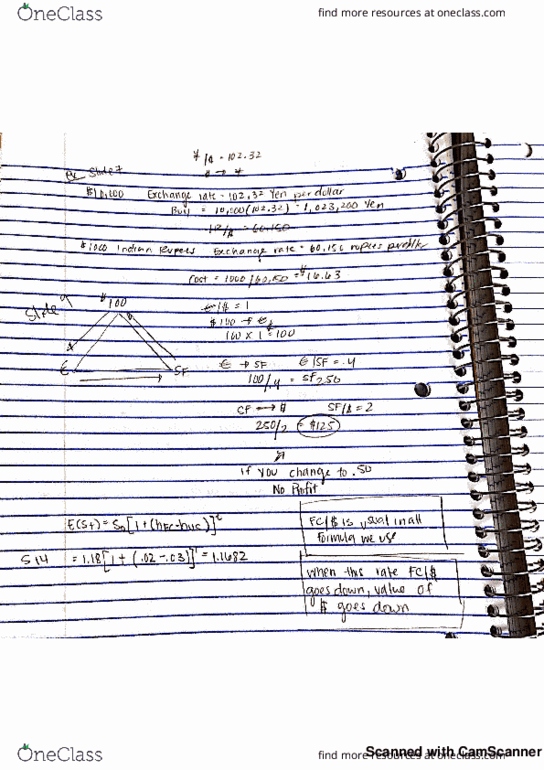 OneClass
find more resources at oneclass.com
¥/$ = 102.32
Slide 7
$10,000 Exchange rate = 102.32 Yen per dollar
Buy = 10,000(102.32) = 1,023,200 Yen
IR/$ = 60.150
1000 Indian Rupees Exchange rate = 60.150 rupees
Cost = 1000/60.150 = $16.63
Slide 9
$100
€/$ = 1
$100 → €
100 x 1 = 100
€
SF
€ → SF €/SF = .4
100/.4 = SF 250
SF/$ = 2
250/2 = $125
if you change to .50
No Profit
E(St) = S0[1+(hFC-hUS)]t
FC/$ is usual in all
formula we use
S14 = 1.18[1 + (.02-.03)]1 = 1.1682
When this rate FC/$
goes down, value of
$ goes down
OneClass
find more resources at oneclass.com
Scanned with CamScanner